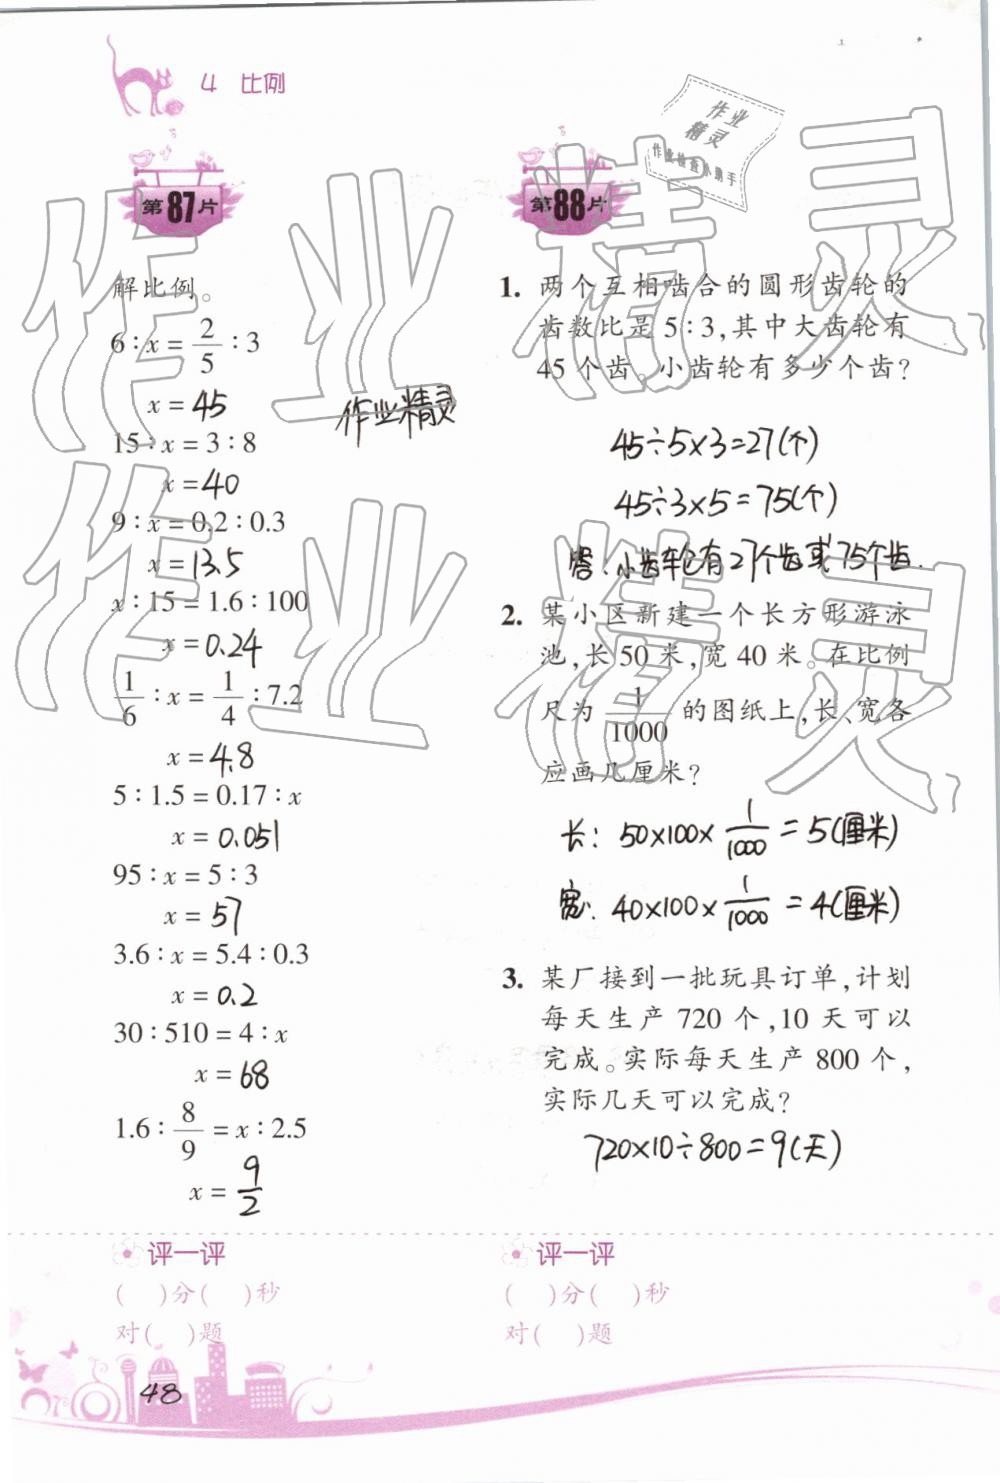 4 比例
作业
精灵
作业检查小助手
第87片
解比例。
6∶x = 2/5 ∶3
x = 45
作业精灵
15∶x = 3∶8
x = 40
9∶x = 0.2∶0.3
x = 13.5
x∶15 = 1.6∶100
x = 0.24
1/6 ∶x = 1/4 ∶7.2
x = 4.8
5∶1.5 = 0.17∶x
x = 0.051
95∶x = 5∶3
x = 57
3.6∶x = 5.4∶0.3
x = 0.2
30∶510 = 4∶x
x = 68
1.6∶8/9 = x∶2.5
x = 9/2
评一评
(  )分(  )秒
对(  )题
第88片
1. 两个互相啮合的圆形齿轮的
齿数比是 5∶3,其中大齿轮有
45 个齿。小齿轮有多少个齿?
45÷5×3=27(个)
45÷3×5=75(个)
答:小齿轮有27个齿或75个齿.
2. 某小区新建一个长方形游泳
池,长 50 米,宽 40 米。在比例
尺为 1/1000 的图纸上,长、宽各
应画几厘米?
长: 50×100× 1/1000 = 5(厘米)
宽: 40×100× 1/1000 = 4(厘米)
3. 某厂接到一批玩具订单,计划
每天生产 720 个,10 天可以
完成。实际每天生产 800 个,
实际几天可以完成?
720×10÷800=9(天)
评一评
(  )分(  )秒
对(  )题
48
作业精灵
作业精灵